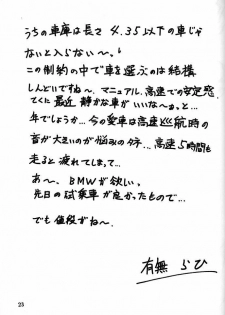 うちの車庫は長さ 4.35以下の車じゃ
ないと入らない〜、
この制約の中で車を選ぶのは結構
しんどいですね〜、マニュアル、高速での安定感、
てくに最近 静かな車がいいな〜ぁっと…
年でしょうか…今の愛車は高速巡航時の
音が大きいのが悩みのタネ…高速5時間も
走ると疲れてしまって…
あ〜、BMWが欲しい。
先日の試乗車が良かったもので…
でも値段がね〜
有無 らひ
25